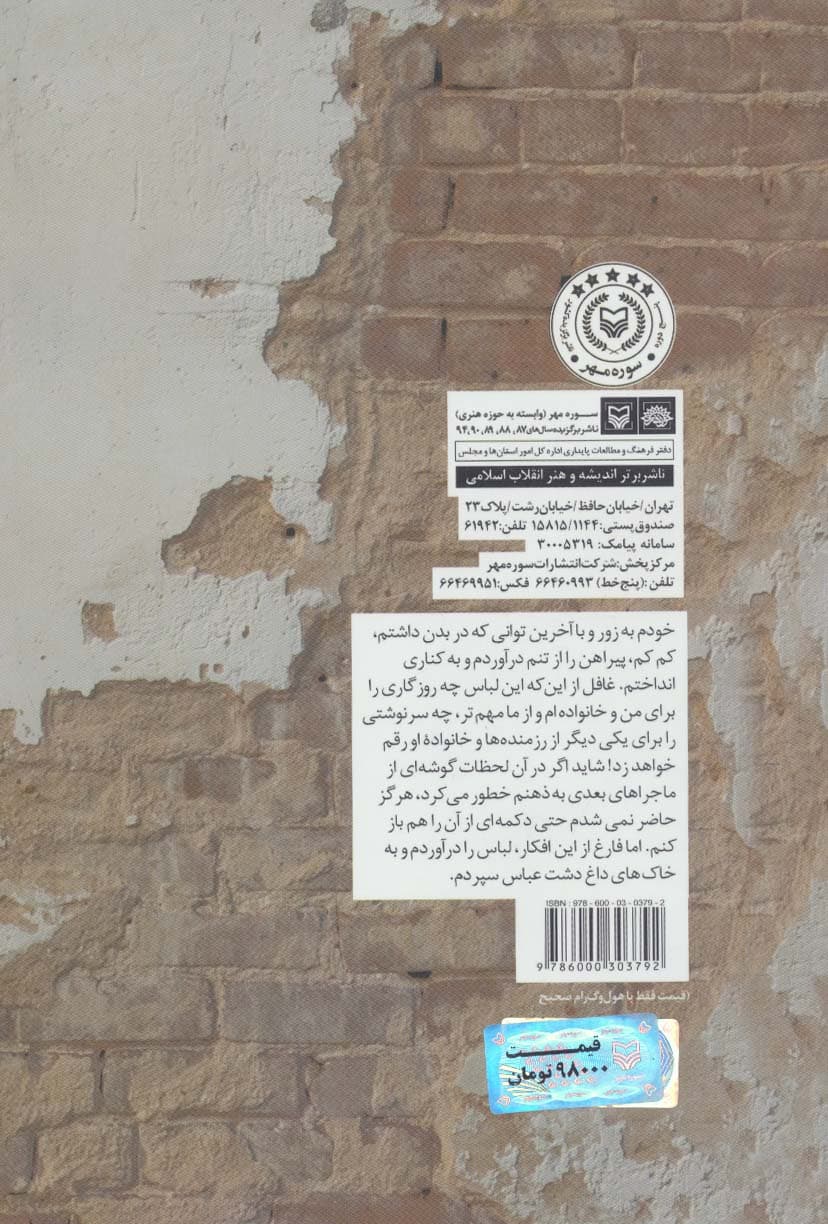 سوره مهر
سوره مهر (وابسته به حوزه هنری)
ناشر برگزیده سال‌های ۸۷، ۸۸، ۸۹، ۹۰، ۹۴
دفتر فرهنگ و مطالعات پایداری اداره کل امور استان‌ها و مجلس
ناشر برتر اندیشه و هنر انقلاب اسلامی
تهران/خیابان حافظ/خیابان رشت/پلاک ۲۳
صندوق پستی: ۱۵۸۱۵/۱۱۴۴ تلفن: ۶۱۹۴۲
سامانه پیامک: ۳۰۰۰۵۳۱۹
مرکز پخش: شرکت انتشارات سوره مهر
تلفن: (پنج خط) ۶۶۴۶۰۹۹۳ فکس: ۶۶۴۶۹۹۵۱
خودم به زور و با آخرین توانی که در بدن داشتم،
کم کم، پیراهن را از تنم درآوردم و به کناری
انداختم. غافل از این‌که این لباس چه روزگاری را
برای من و خانواده ام و از ما مهم تر، چه سرنوشتی
را برای یکی دیگر از رزمنده‌ها و خانوادهٔ او رقم
خواهد زد! شاید اگر در آن لحظات گوشه‌ای از
ماجراهای بعدی به ذهنم خطور می‌کرد، هرگز
حاضر نمی شدم حتی دکمه‌ای از آن را هم باز
کنم. اما فارغ از این افکار، لباس را درآوردم و به
خاک‌های داغ دشت عباس سپردم.
ISBN : 978 - 600 - 03 - 0379 - 2
9 786000 303792
(قیمت فقط با هولوگرام صحیح
قیمت
۹۸۰۰۰ تومان